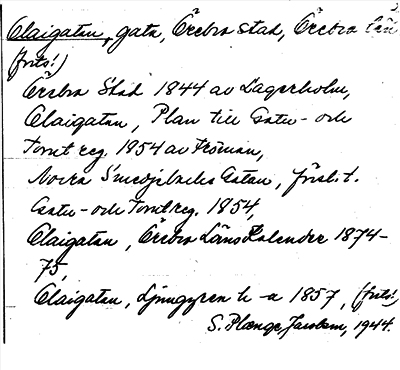 Olaigatan, gata, Örebro stad, Örebro län
(forts!)
Örebro Stad 1844 av Lagerholm,
Olaigatan, Plan till Gatu- och
Tomtreg. 1954 av Fröman,
Norra Smedjebacks Gatan, förslit.
Gatu- och Tomtreg. 1954,
Olaigatan, Örebro Läns Kalender 1874-
75,
Olaigatan, Ljunggren h-a 1857, (forts!)
S. Plænge Jacobson, 1944.